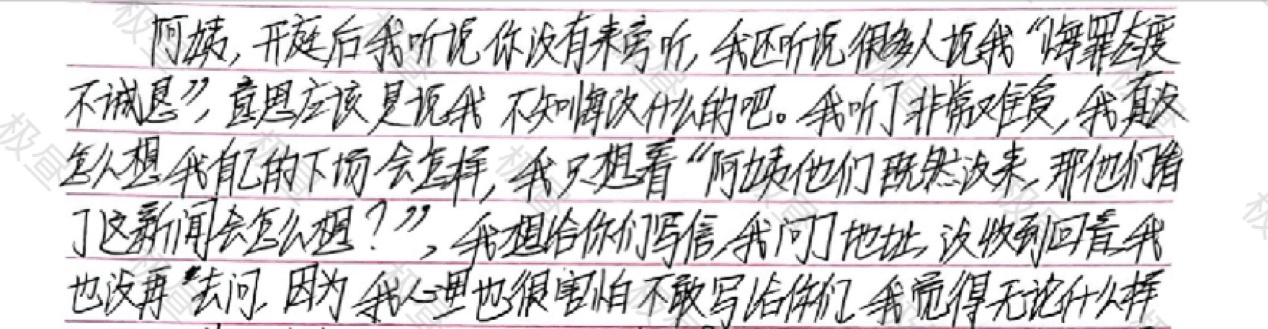 阿姨，开庭后我听说你没有来旁听，我还听说很多人说我“悔罪态度
不诚恳”，意思应该是说我不知悔改什么的吧。我听了非常难受，我真没
怎么想我自己的下场会怎样，我只想着“阿姨他们既然没来，那他们看
了这新闻会怎么想？”，我想给你们写信，我问了地址，没收到回音，我
也没再去问，因为我心里也很害怕不敢写给你们，我觉得无论什么样
极昼